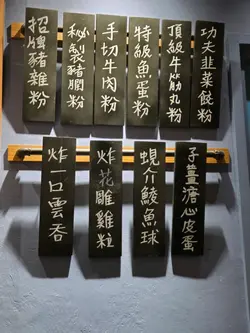 功夫韭菜餃粉
頂級牛筋丸粉
特級魚蛋粉
手切牛肉粉
秘製豬膶粉
招牌豬雜粉
子薑溏心皮蛋
蜆介鯪魚球
炸花雕雞粒
炸一口雲吞